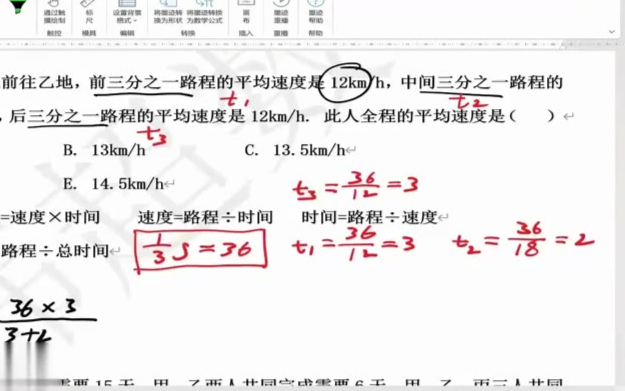 通过触
标
设置背景
将墨迹转
将墨迹转
画
墨迹
墨迹
摸绘制
尺
格式
换为形状
为数学公式
布
重播
帮助
触控
模具
编辑
转换
插入
重播
帮助
前往乙地，前三分之一路程的平均速度是 12km/h，中间三分之一路程的
t₁
t₂
，后三分之一路程的平均速度是 12km/h. 此人全程的平均速度是（　　）
t₃
B. 13km/h
C. 13.5km/h
E. 14.5km/h
t₃ = 36/12 = 3
=速度×时间 速度=路程÷时间 时间=路程÷速度
路程÷总时间 1/3 S = 36 t₁ = 36/12 = 3 t₂ = 36/18 = 2
36 × 3
3+2
需要 15 天，甲、乙两人共同完成需要 6 天，甲、乙、丙三人共同